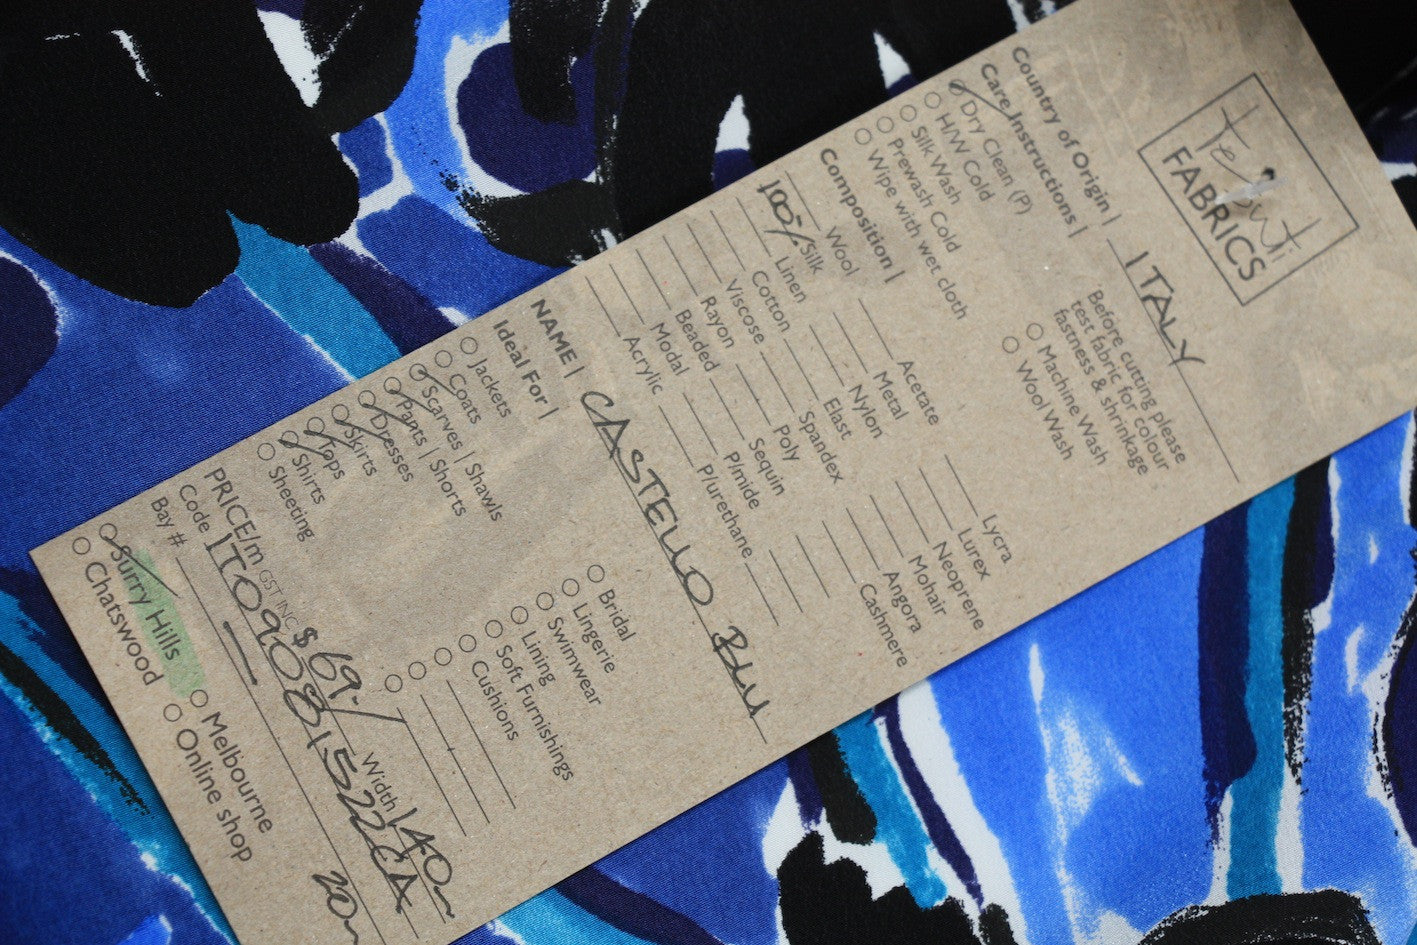 Tessuti
FABRICS
Country of Origin | ITALY
Care Instructions |
Dry Clean (P)
H/W Cold
Silk Wash
Prewash Cold
Wipe with wet cloth
Before cutting please
test fabric for colour
fastness & shrinkage
Machine Wash
Wool Wash
Composition |
Wool
100% Silk
Linen
Cotton
Viscose
Rayon
Beaded
Modal
Acrylic
Acetate
Metal
Nylon
Elast
Spandex
Poly
Sequin
P/mide
P/urethane
Lycra
Lurex
Neoprene
Mohair
Angora
Cashmere
NAME | CASTELLO BLU
Ideal For |
Jackets
Coats
Scarves | Shawls
Pants | Shorts
Dresses
Skirts
Tops
Shirts
Sheeting
Bridal
Lingerie
Swimwear
Lining
Soft Furnishings
Cushions
PRICE/m GST INC $69.- Width 140
Code ITO9081522CA
Bay # —
Surry Hills
Chatswood
Melbourne
Online shop